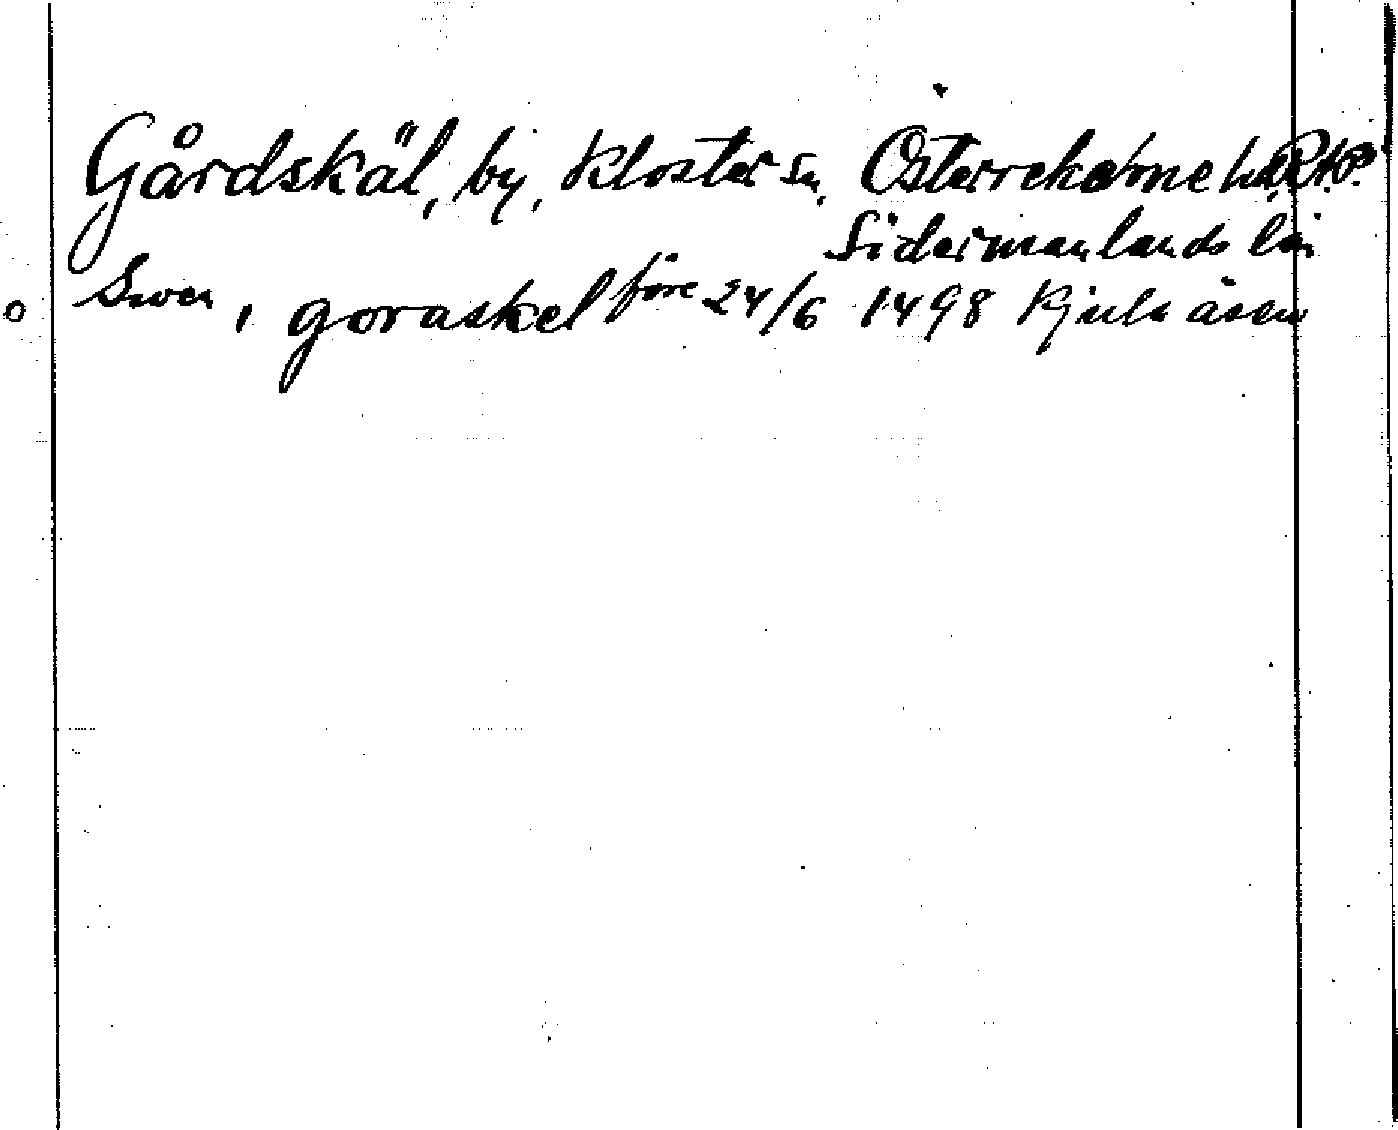 Gårdskäl, by, Kloster sn, Österrekarne hd
Södermanlands län
Swen, goraskel före 24/6 1498 Kjulaåsen